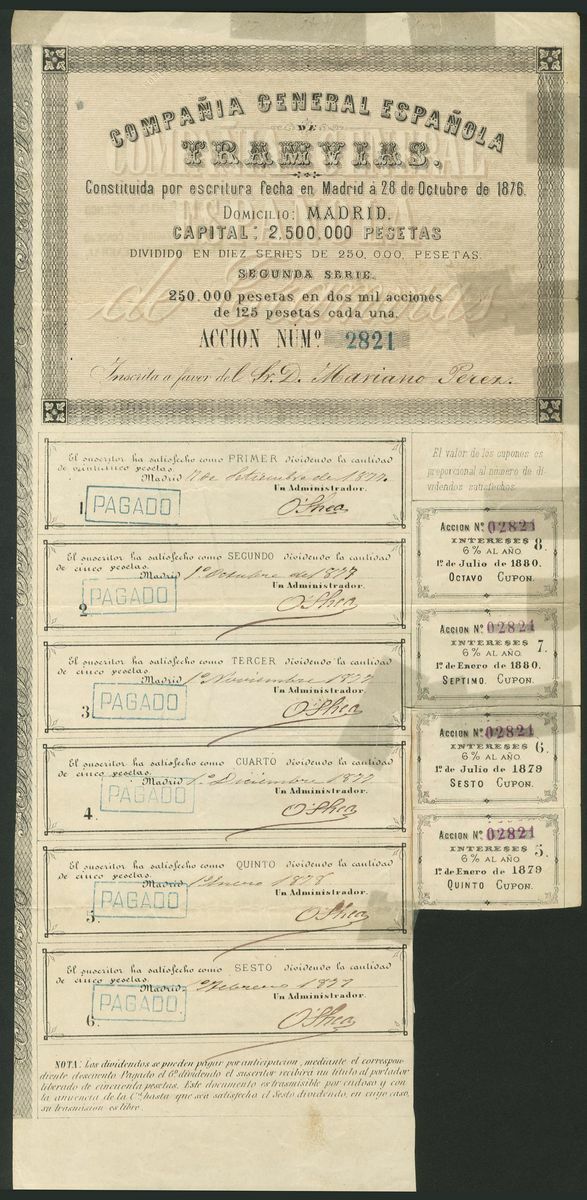 COMPAÑIA GENERAL ESPAÑOLA
DE
TRAMVIAS.
Constituida por escritura fecha en Madrid á 28 de Octubre de 1876.
DOMICILIO: MADRID.
CAPITAL: 2,500.000 PESETAS
DIVIDIDO EN DIEZ SERIES DE 250,000, PESETAS.
SEGUNDA SERIE.
250.000 pesetas en dos mil acciones
de 125 pesetas cada una.
ACCION NÚMº 2821
Inscrita a favor del Sr. D. Mariano Perez.
El suscritor ha satisfecho como PRIMER dividendo la cantidad
de veinticinco pesetas.
Madrid de Setiembre de 1877.
Un Administrador.
1. PAGADO
O'Shea
El suscritor ha satisfecho como SEGUNDO dividendo la cantidad
de cinco pesetas.
Madrid 1º Octubre de 1877
Un Administrador.
2 PAGADO
O'Shea
El suscritor ha satisfecho como TERCER dividendo la cantidad
de cinco pesetas.
Madrid 1º Noviembre 1877
Un Administrador.
3 PAGADO
O'Shea
El suscritor ha satisfecho como CUARTO dividendo la cantidad
de cinco pesetas.
Madrid 1º Diciembre 1877
Un Administrador.
4. PAGADO
O'Shea
El suscritor ha satisfecho como QUINTO dividendo la cantidad
de cinco pesetas.
Madrid 1º Enero 1878
Un Administrador.
5. PAGADO
O'Shea
El suscritor ha satisfecho como SESTO dividendo la cantidad
de cinco pesetas.
Madrid 1º Febrero
Un Administrador.
6. PAGADO
O'Shea
El valor de los cupones es
proporcional al número de di-
videndos satisfechos.
ACCION Nº. 02821
INTERESES 8.
6% AL AÑO
1º. de Julio de 1880.
OCTAVO CUPON.
ACCION Nº. 02821
INTERESES 7.
6% AL AÑO
1º. de Enero de 1880.
SEPTIMO. CUPON.
ACCION Nº. 02821
INTERESES 6.
6% AL AÑO
1º. de Julio de 1879
SESTO CUPON.
ACCION Nº. 02821
INTERESES 5.
6% AL AÑO
1º. de Enero de 1879
QUINTO CUPON.
NOTA: Los dividendos se pueden pagar por anticipacion, mediante el correspon-
diente descuento. Pagado el 6º. dividendo el suscritor recibirá un titulo al portador
liberado de cincuenta pesetas. Este documento es trasmisible por endoso y con
la anuencia de la Cª. hasta que sea satisfecho el Sesto dividendo, en cuyo caso,
su trasmision es libre.